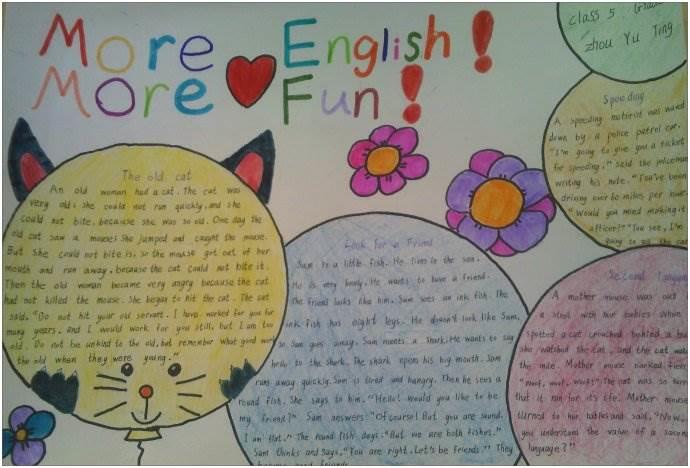 More English!
More Fun!
class 5
Zhou Yu Ting
The old cat
An old woman had a cat. The cat was
very old; she could not run quickly, and she
could not bite, because she was so old. One day the
old cat saw a mouse; she jumped and caught the mouse.
But she could not bite it; so the mouse got out of her
mouth and ran away, because the cat could not bite it.
Then the old woman became very angry because the cat
had not killed the mouse. She began to hit the cat. The cat
said, "Do not hit your old servant. I have worked for you for
many years, and I would work for you still, but I am too
old. Do not be unkind to the old, but remember what good work
the old when they were young."
Look for a Friend
Sam is a little fish. He lives in the sea.
He is very lonely. He wants to have a friend.
The friend looks like him. Sam sees an ink fish. The
ink fish has eight legs. He doesn't look like Sam.
So Sam goes away. Sam meets a shark. He wants to say
hello to the shark. The shark opens his big mouth. Sam
runs away quickly. Sam is tired and hungry. Then he sees a
round fish. She says to him. "Hello! Would you like to be
my friend?" Sam answers: "Of course! But you are round.
I am flat." The round fish says: "But we are both fishes."
Sam thinks and says, "You are right. Let's be friends." They
become good friends.
Speeding
A speeding motorist was waved
down by a police patrol car.
"I'm going to give you a ticket
for speeding," said the policeman
writing his note. "You've been
driving over 60 miles per hour."
"Would you mind making it
officer?" "You see, I'm
going to sell the car
Second
A mother mouse was out
a stroll with her babies when
spotted a cat crouched behind a bu
she watched the cat, and the cat watc
the mice. Mother mouse barked fierc
"woof, woof, woof!" The cat was so terr
that it ran for its life. Mother mouse
turned to her babies and said, "Now,
you understand the value of a second
language?"